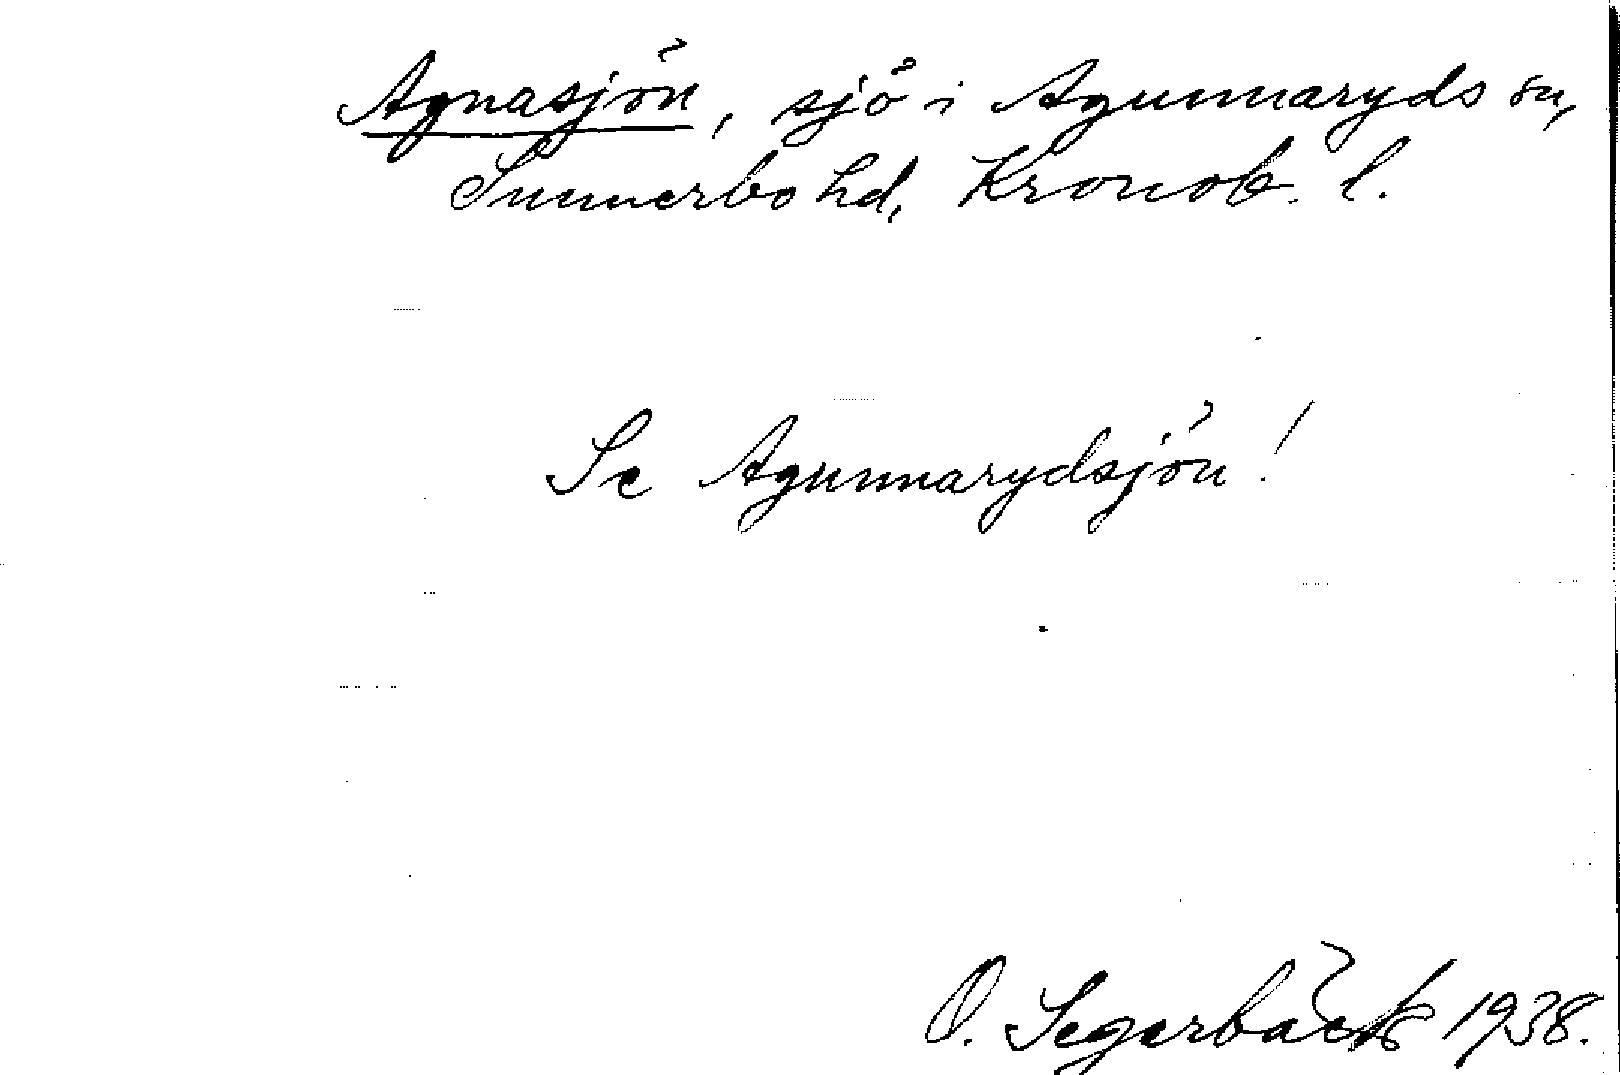 Agnasjön, sjö i Agunnaryds sn,
Sunnerbo hd, Kronob. l.
Se Agunnarydsjön!
O. Segerbäck 1938.